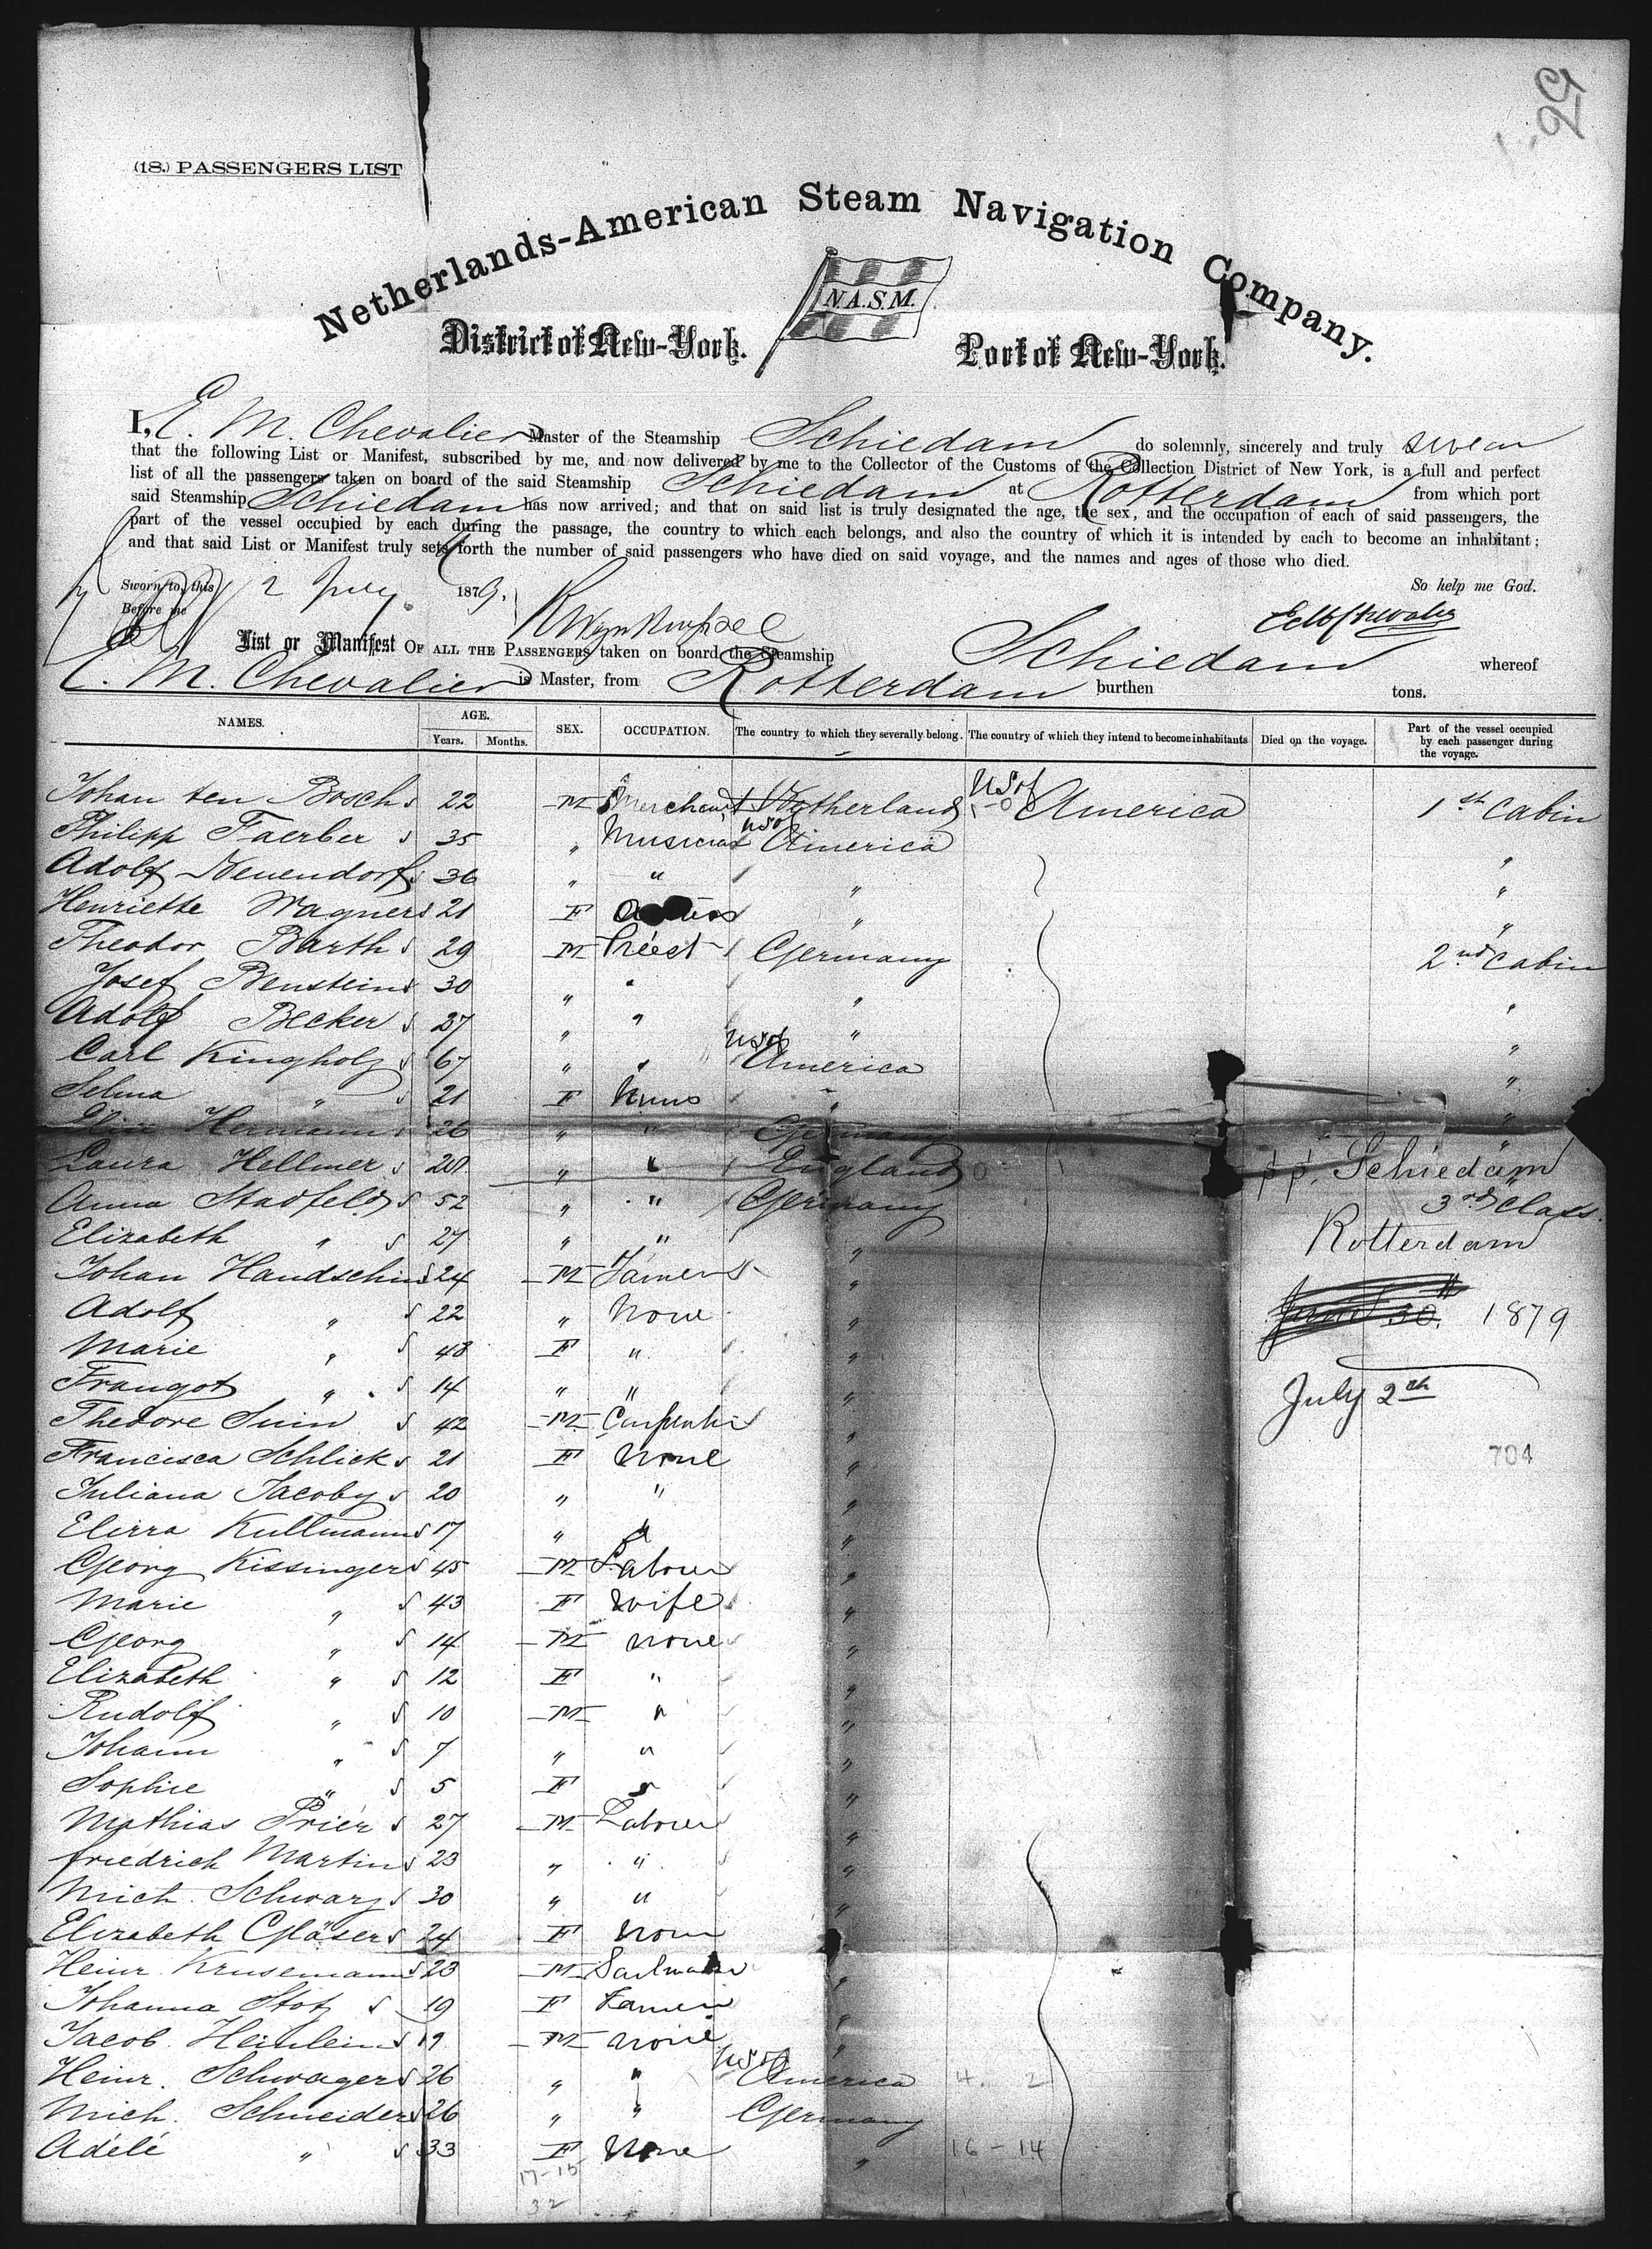 29
(18.) PASSENGERS LIST
Netherlands-American Steam Navigation Company.
N.A.S.M.
District of New-York. Port of New-York.
I, E. M. Chevalier Master of the Steamship Schiedam do solemnly, sincerely and truly swear
that the following List or Manifest, subscribed by me, and now delivered by me to the Collector of the Customs of the Collection District of New York, is a full and perfect
list of all the passengers taken on board of the said Steamship Schiedam at Rotterdam from which port
said Steamship Schiedam has now arrived; and that on said list is truly designated the age, the sex, and the occupation of each of said passengers, the
part of the vessel occupied by each during the passage, the country to which each belongs, and also the country of which it is intended by each to become an inhabitant;
and that said List or Manifest truly sets forth the number of said passengers who have died on said voyage, and the names and ages of those who died.
Sworn to, this 2 July 1879, So help me God.
Before me
List or Manifest OF ALL THE PASSENGERS taken on board the Steamship Schiedam whereof
E. M. Chevalier is Master, from Rotterdam burthen tons.
NAMES. AGE. Years. Months. SEX. OCCUPATION. The country to which they severally belong. The country of which they intend to become inhabitants Died on the voyage. Part of the vessel occupied by each passenger during the voyage.
Johan ten Bosch s 22 M Merchant Netherland US of America 1st Cabin
Philipp Faerber s 35 " Musician US of America "
Adolf Neuendorf s 36 " " " "
Henriette Wagner s 21 F " "
Theodor Barth s 29 M Priest Germany 2nd Cabin
Josef Benstein s 30 " " " "
Adolf Becker s 27 " " " "
Carl Kingholz s 67 " " US of America "
Selma " s 21 F Nuns " "
Hermann s 26 " " Germany "
Laura Hellmer s 28 " " England pp. Schiedam
Anna Stadfeld s 52 " " Germany 3rd Class.
Elizabeth " s 27 " " " Rotterdam
Johan Handschin s 24 M Farmer "
Adolf " s 22 " None " 30. 1879
Marie " s 43 F " "
Frangot " s 14 " " " July 2th
Thedore Suin s 42 M Carpenter "
Francisca Schlick s 21 F None " 704
Juliana Jacoby s 20 " " "
Elirra Kullmann s 17 " " "
Georg Kissinger s 45 M Labour "
Marie " s 43 F Wife "
Georg " s 14 M None "
Elizabeth " s 12 F " "
Rudolf " s 10 M " "
Johann " s 7 " " "
Sophie " s 5 F " "
Mathias Prier s 27 M Labour "
Friedrich Martin s 23 " " "
Mich. Schwarz s 30 " " "
Elizabeth Gläser s 24 F None
Heinr. Krusemann s 23 M "
Johanna Stotz s 19 F "
Jacob Heinlein s 19 M None "
Heinr. Schwager s 26 " " US of America 4. 2
Mich. Schneider s 26 " " Germany
Adélé " s 33 F None " 16-14
17-15
32